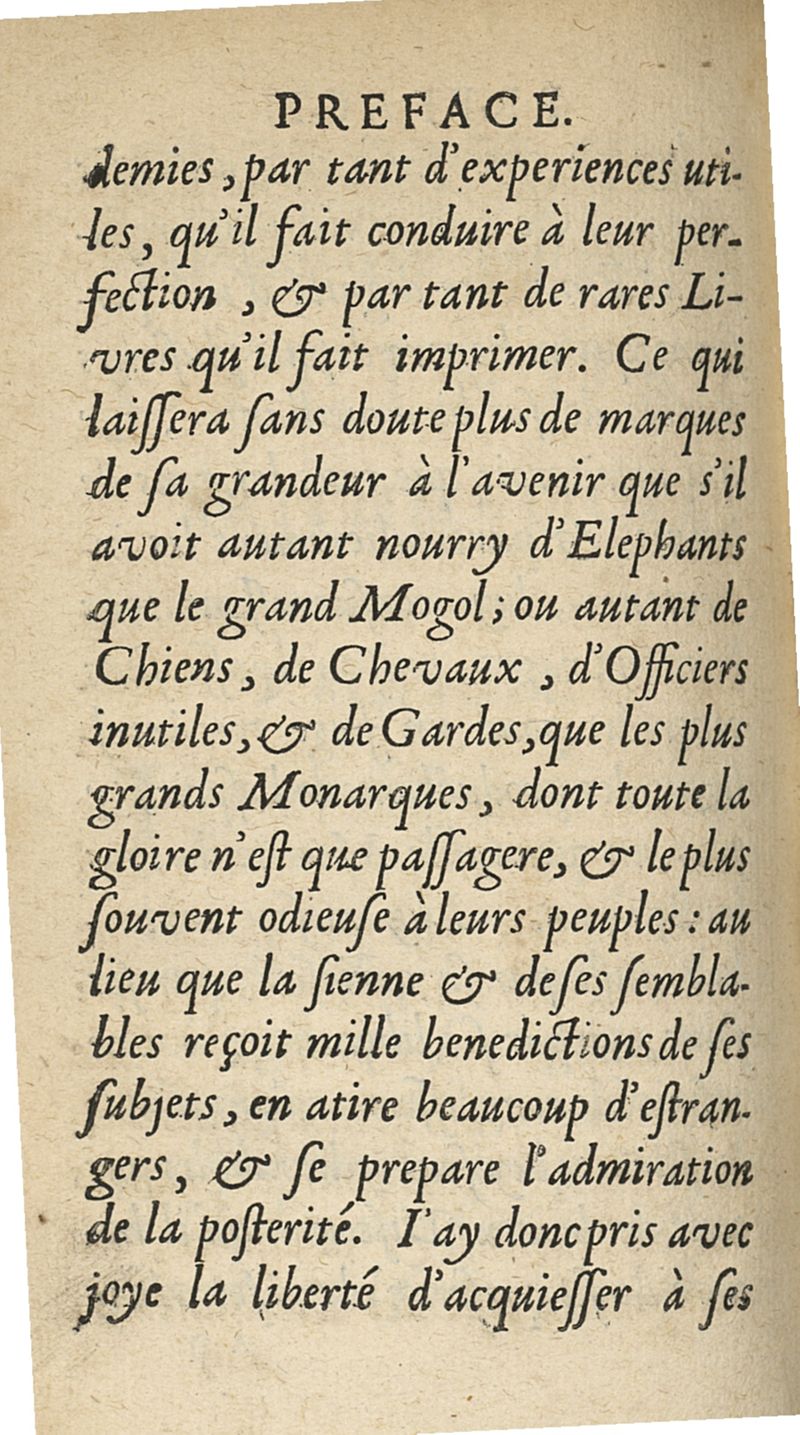 PREFACE.
demies, par tant d'experiences uti-
les, qu'il fait conduire à leur per-
fection, & par tant de rares Li-
vres qu'il fait imprimer. Ce qui
laiſſera ſans doute plus de marques
de ſa grandeur à l'avenir que s'il
avoit autant nourry d'Elephants
que le grand Mogol; ou autant de
Chiens, de Chevaux, d'Officiers
inutiles, & de Gardes, que les plus
grands Monarques, dont toute la
gloire n'eſt que paſſagere, & le plus
ſouvent odieuſe à leurs peuples: au
lieu que la ſienne & de ſes ſembla-
bles reçoit mille benedictions de ſes
ſubjets, en atire beaucoup d'eſtran-
gers, & ſe prepare l'admiration
de la poſterité. I'ay donc pris avec
joye la liberté d'acquieſſer à ſes